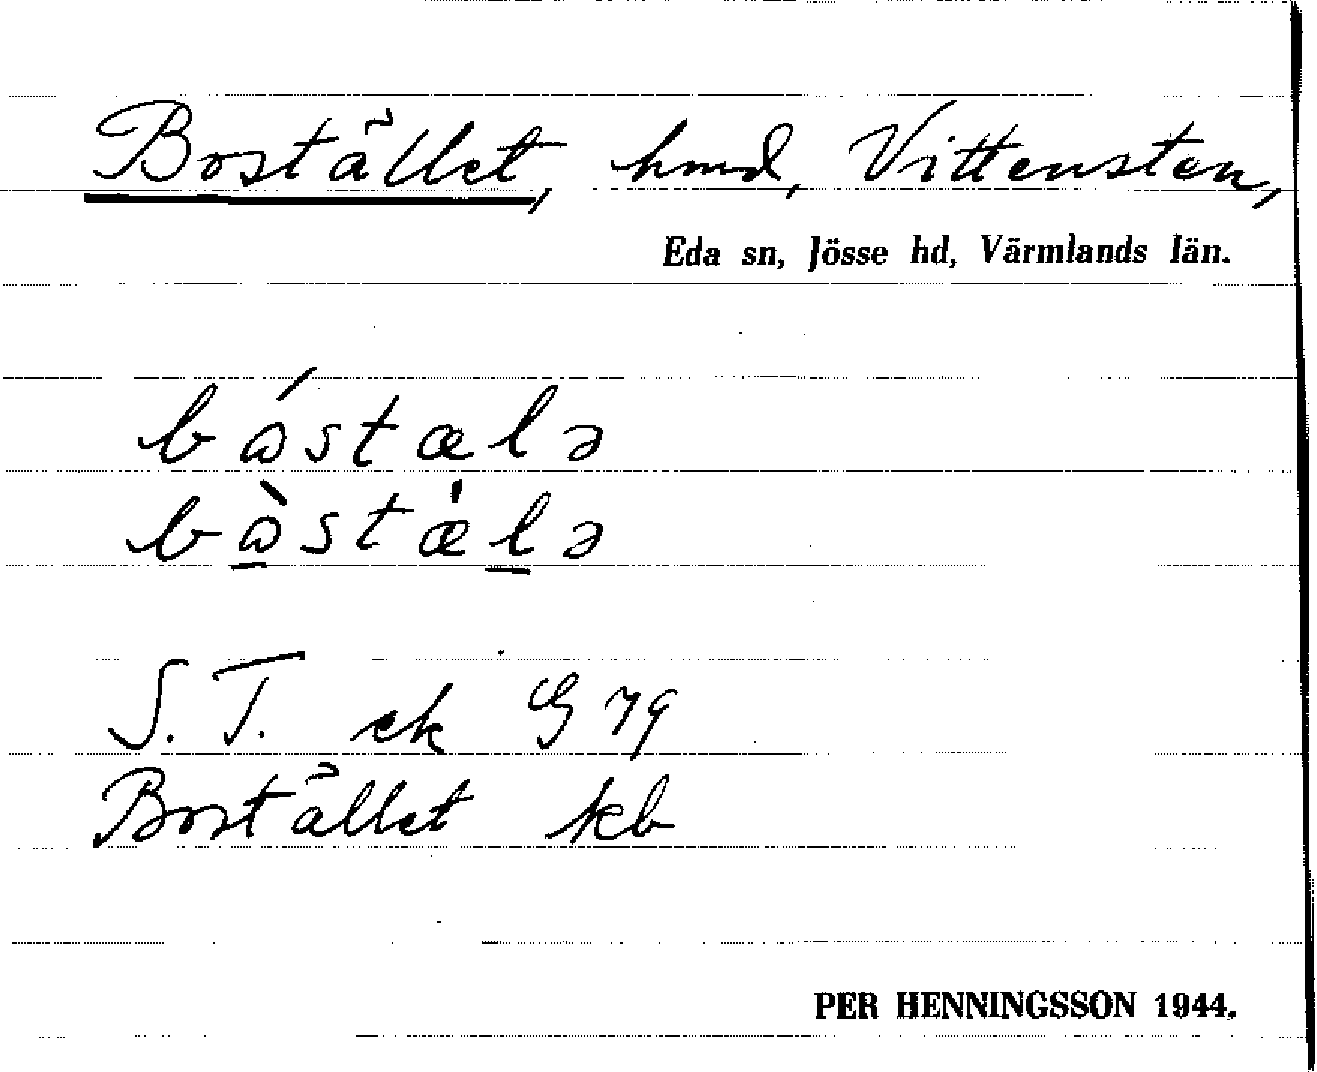 Bostället, hmd, Vittensten,
Eda sn, Jösse hd, Värmlands län.
bɷ́stælə
bɷ̀stæ̍lə
S. T. ek G 79
Bostället kb
PER HENNINGSSON 1944.